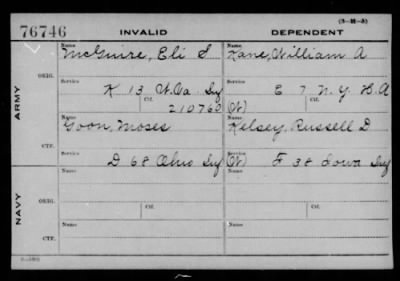 (3-M-3)
76746 INVALID DEPENDENT
ARMY
ORIG.
Name
McGuire, Eli S
Name
Kane, William A
Service
K 13 W.Va. Inf
Service
E 7 N.Y. H.A
Ctf.
210760
Ctf.
(W)
CTF.
Name
Goon, Moses
Name
Kelsey, Russell D
Service
D 68 Ohio Inf
Service
(W) F 38 Iowa Inf
NAVY
ORIG.
Name
Name
Ctf.
Ctf.
CTF.
Name
Name